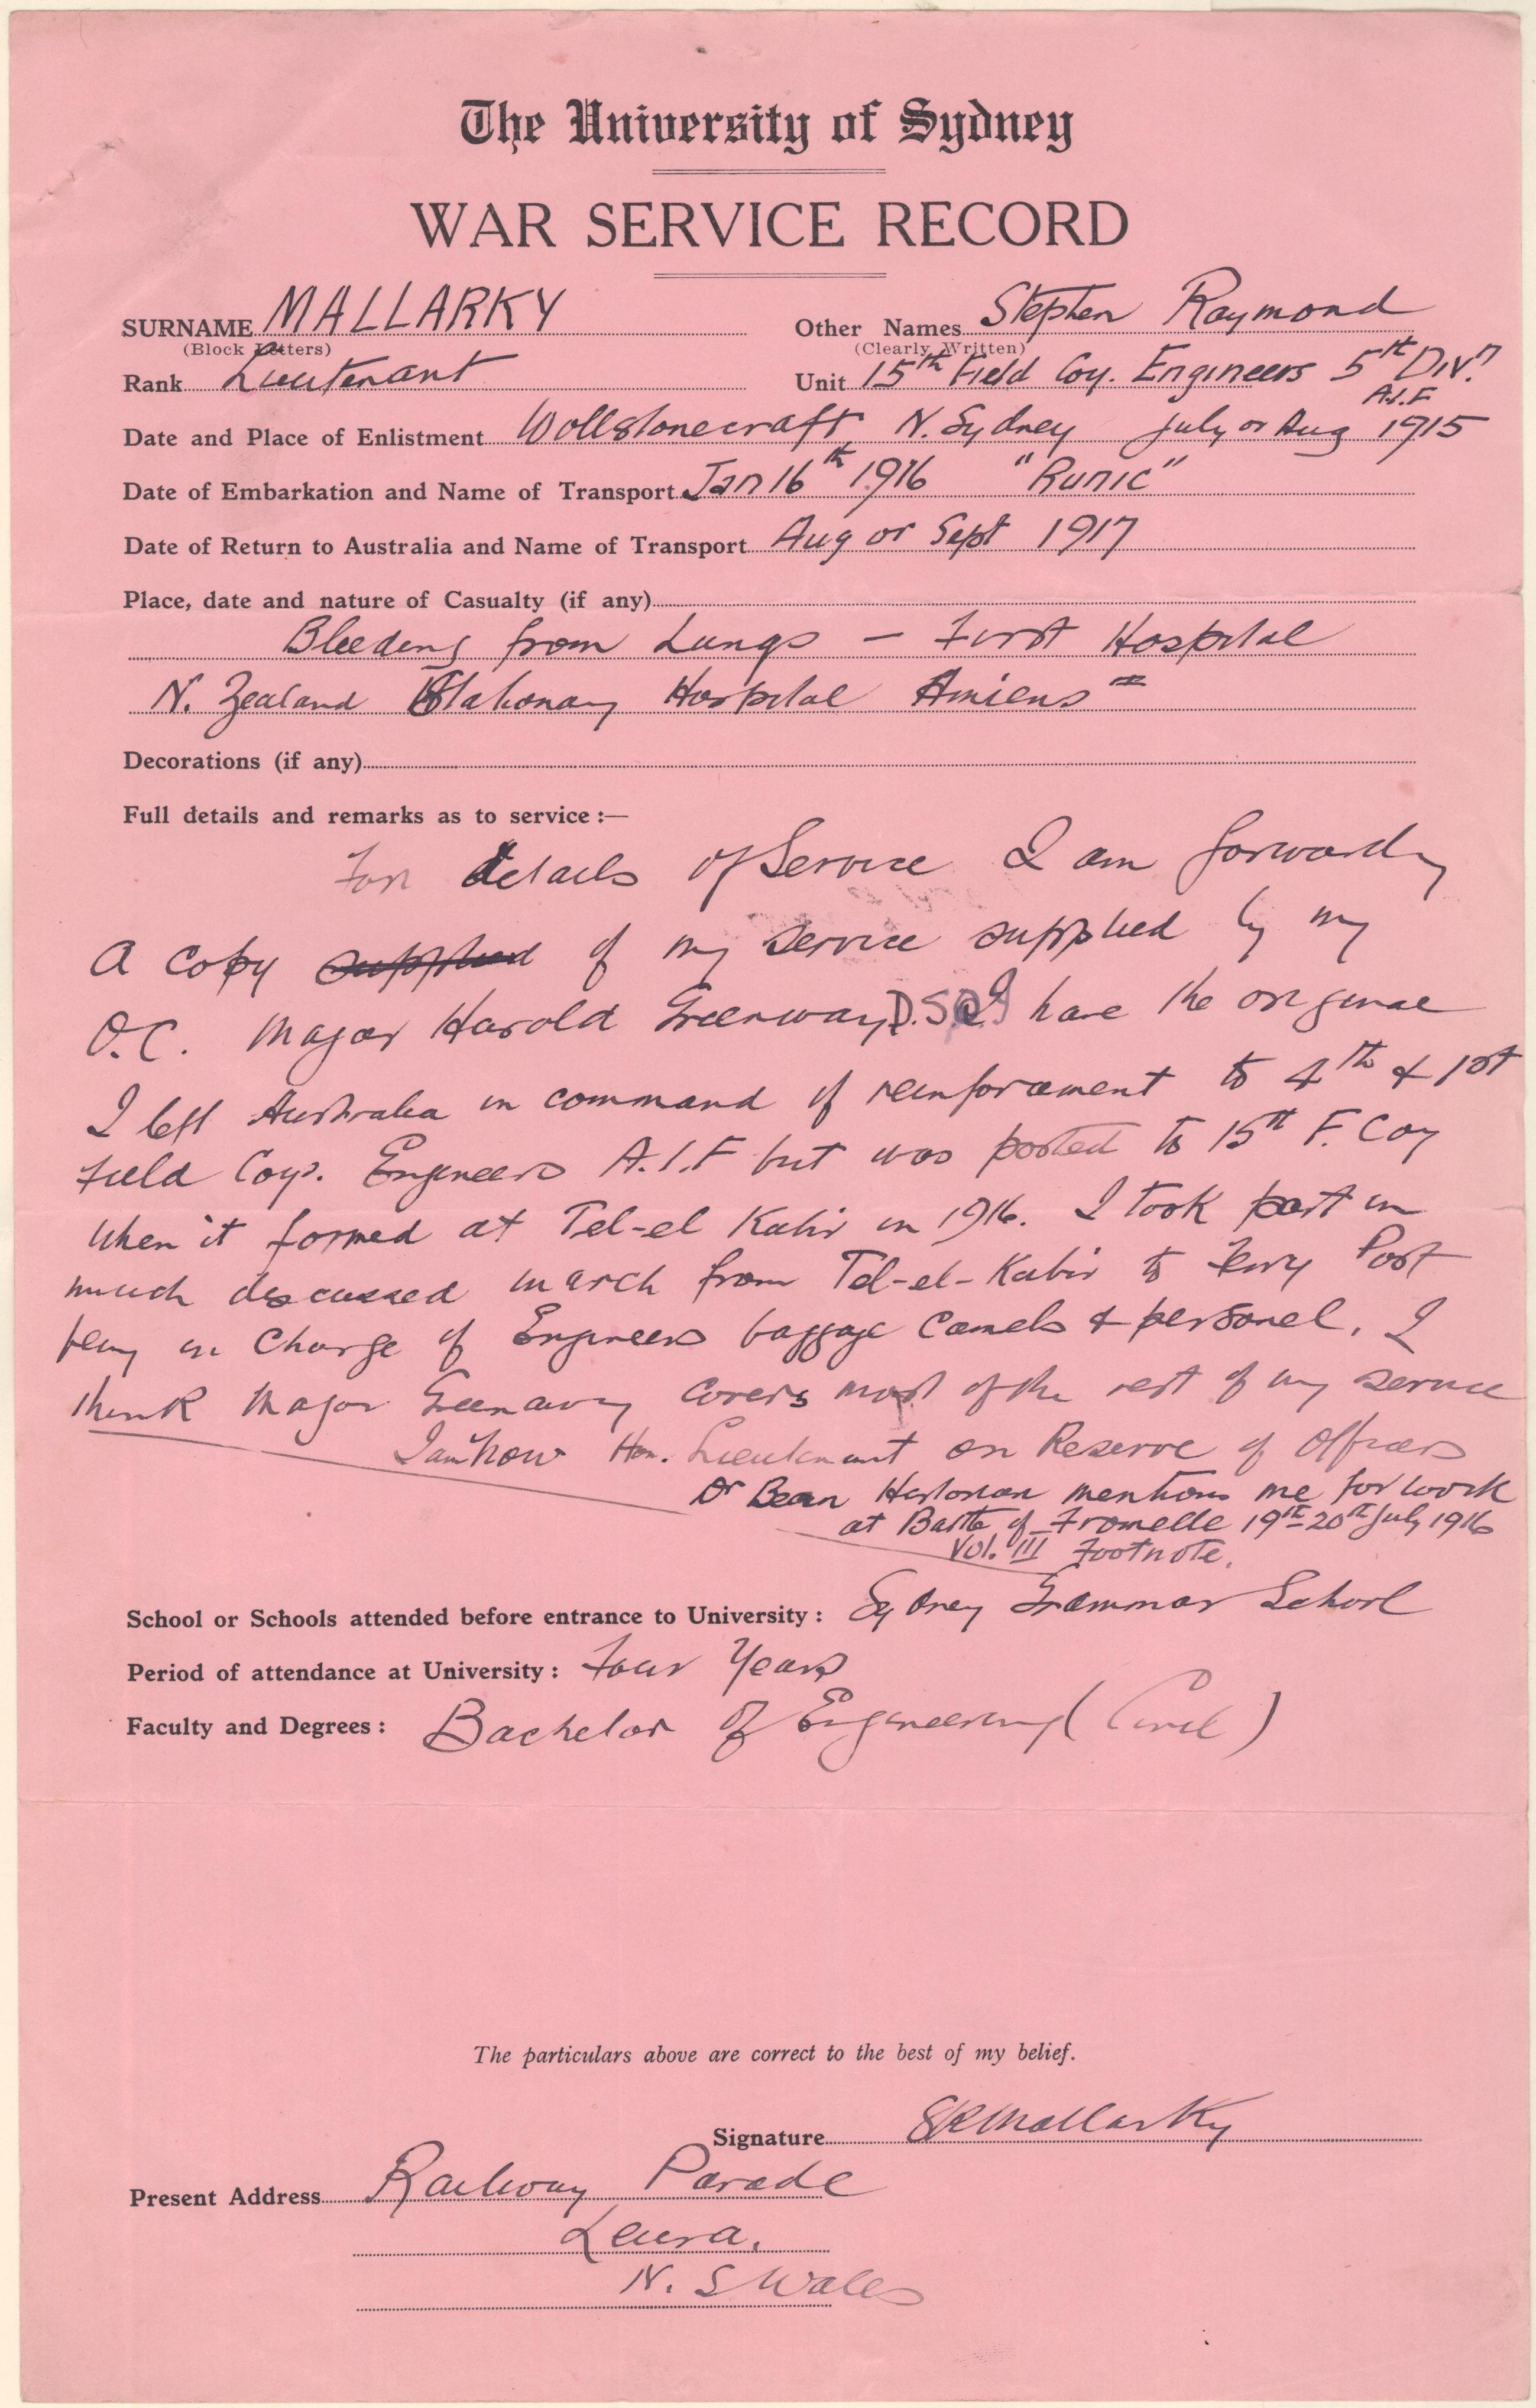 The University of Sydney
WAR SERVICE RECORD
SURNAME MALLARKY Other Names Stephen Raymond
(Block Letters) (Clearly Written)
Rank Lieutenant Unit 15th Field Coy. Engineers 5th Divn
A.I.F
Date and Place of Enlistment Wollstonecraft, N. Sydney July or Aug 1915
Date of Embarkation and Name of Transport Jan 16th 1916 "Runic"
Date of Return to Australia and Name of Transport Aug or Sept 1917
Place, date and nature of Casualty (if any)
Bleeding from Lungs – First Hospital
N. Zealand Stationary Hospital Amiens
Decorations (if any)
Full details and remarks as to service :—
For details of Service I am forwarding
a copy supplied of my service supplied by my
O.C. Major Harold Greenway D.S.O. I have the original
I left Australia in command of reinforcement to 4th & 1st
Field Coys. Engineers A.I.F but was posted to 15th F. Coy
when it formed at Tel-el Kabir in 1916. I took part in
much discussed march from Tel-el-Kabir to Ferry Post
being in charge of Engineers baggage camels & personel. I
think Major Greenaway covers most of the rest of my service
I am now Hon. Lieutenant on Reserve of Officers
Dr Bean Historian mentions me for work
at Battle of Fromelle 19th-20th July 1916
Vol. III Footnote.
School or Schools attended before entrance to University : Sydney Grammar School
Period of attendance at University : Four Years
Faculty and Degrees : Bachelor of Engineering (Civil)
The particulars above are correct to the best of my belief.
Signature SRMallarky
Present Address Railway Parade
Leura.
N. S Wales